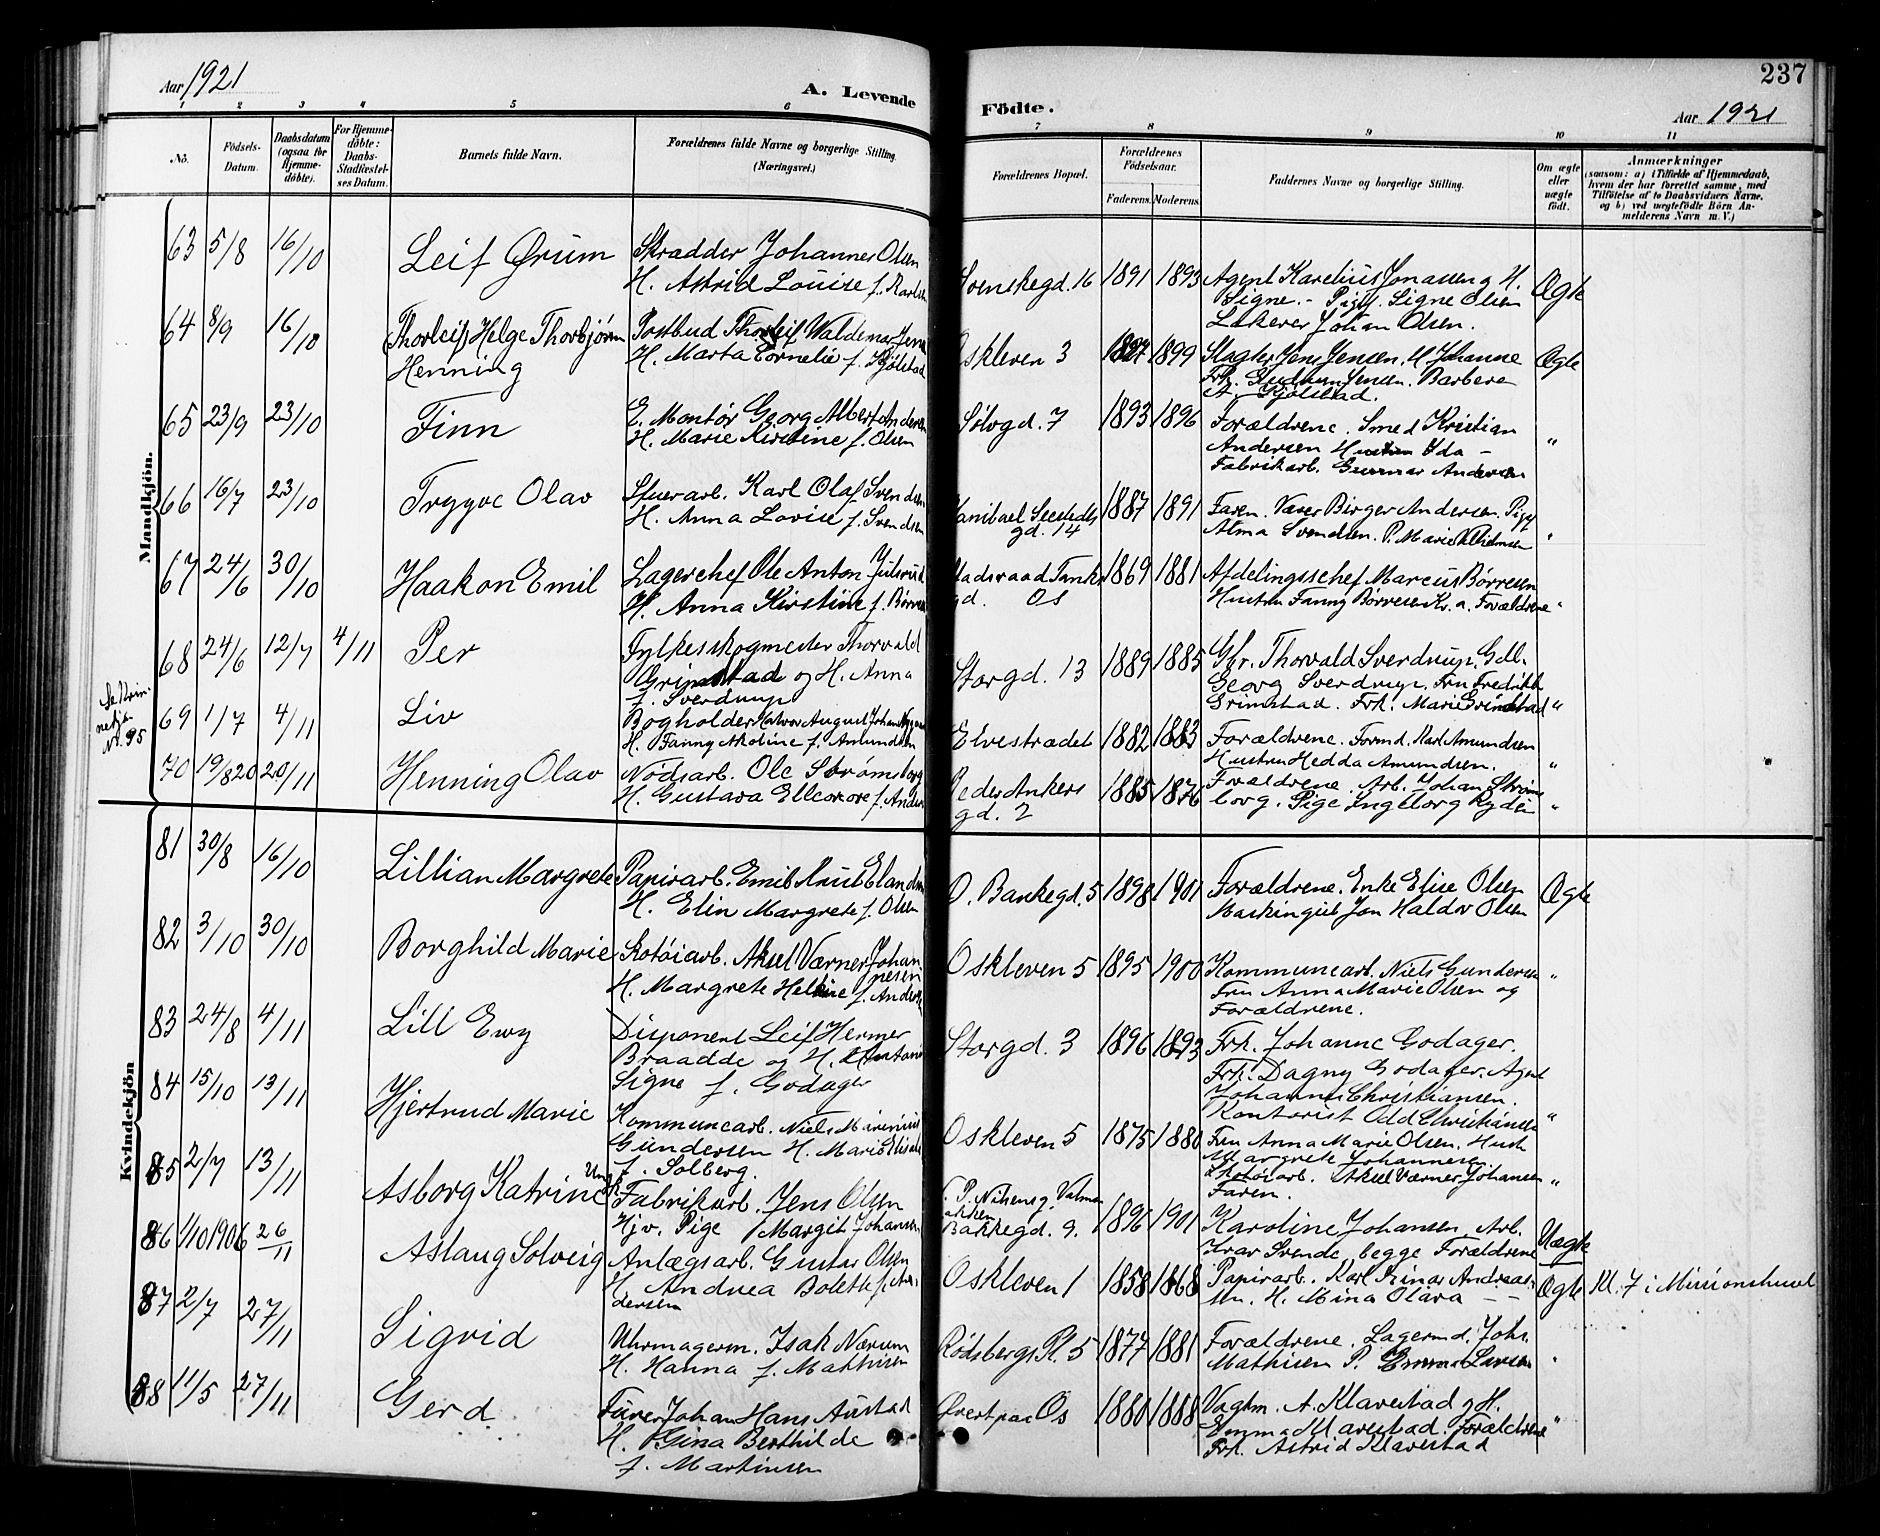 Aar 1921
A. Levende
Födte.
237
Aar 1921
1 2 3 4 5 6 7 8 9 10 11
No.
Födsels-Datum.
Daabsdatum (ogsaa for Hjemme-döbte).
For Hjemme-döbte: Daabs-Stadfæstel-ses Datum.
Barnets fulde Navn.
Forældrenes fulde Navne og borgerlige Stilling. (Næringsvei.)
Forældrenes Bopæl.
Forældrenes Födselsaar.
Faderens. Moderens.
Faddernes Navne og borgerlige Stilling.
Om ægte eller uægte födt.
Anmærkninger
(saasom: a) i Tilfælde af Hjemmedaab, hvem der har forrettet samme, med Tilföielse af to Daabsvidners Navne, og b) ved uægtefödte Börn An-melderens Navn m. V.)
Mandkjön.
63 5/8 16/10 Leif Ørum Skradder Johannes Olsen
H. Astrid Louise f. Karlsen
Svenskegd. 16 1891 1893 Agent Karelius Jonassen og H.
Signe. - Pige Signe Olsen
Lakerer Johan Olsen.
Ægte
64 8/9 16/10 Thorleif Helge Thorbjørn
Henning
Postbud Thorleif Waldemar Jensen
H. Marta Cornelie f. Kjølstad
Oskleven 3 1897 1899 Slagter Jens Jensen, H Johanne
Frk. Gudrun Jensen. Barberer
A. Kjølstad.
Ægte
65 23/9 23/10 Finn
E. Montør Georg Albert Andersen
H. Marie Kirstine f. Olsen
Sølvgd. 7 1893 1896 Forældrene. Smed Kristian
Andersen Hustru Ida -
Fabrikarb. Gunnar Andersen
"
66 16/7 23/10 Trygve Olav
Stuerarb. Karl Olaf Svendsen
H. Anna Lovise f. Svendsen
Hanibael Seesteds
gd. 14
1887 1891 Faren. Væver Birger Andersen. Pige
Alma Svendsen. P. Marie Vilhelmsen
"
67 24/6 30/10 Haakon Emil
Lagerchef Ole Anton Julsrud
H. Anna Kirstine f. Børresen
Stadsraad Tanks
gd. Os
1869 1881 Afdelingsschef Marcus Børresen
Hustru Fanny Børresen Kr. a. Forældrene
"
68 24/6 12/7 4/11 Per
Fylkesskogmester Thorvald
Grimstad og H. Anna
f. Sverdrup
Storgd. 13 1889 1885 Gr. Thorvald Sverdrup.
Georg Sverdrup. Fru Fredrikke
Grimstad. Frk. Marie Grimstad
"
Se Kvin-
nekjøn
Nr. 95
69 1/7 4/11 Liv
Bogholder Halvor August Johan
H. Fanny Nkoline f. Amundsen
Elvestrædet 1882 1883 Forældrene. Formd. Karl Amundsen
Hustru Hedda Amundsen.
"
70 19/8 20 20/11 Henning Olav
Nodsarb. Ole Strømsborg
H. Gustava Elleonore f. Andersen
Peder Ankers
gd. 2
1885 1876 Forældrene. Arb. Johan Strøms
borg. Pige Ingeborg Ryden
"
Kvindekjön
81 30/8 16/10 Lillian Margrete
Papirarb. Emil Knut Elandsen
H. Elin Margrete f. Olsen
O. Bankegd. 5 1898 1901 Forældrene. Enke Elise Olsen
Maskingut Jon Haldor Olsen
Ægte
82 3/10 30/10 Borghild Marie
Skotøiarb. Aksel Værner Johan
nesen
H. Margrete Helene f. Andersen
Oskleven 5 1895 1900 Kommunearb. Niels Gundersen
Fru Anna Marie Olsen og
Forældrene.
"
83 24/8 4/11 Lill Ewy
Disponent Leif Hermer
Braadde og H. Antonie
Signe f. Godager
Storgd. 3 1896 1893 Frk. Johanne Godager.
Frk. Dagny Godager. Agent
Johannes Christiansen.
Kontorist Odd Christiansen
"
84 15/10 13/11 Hjertrud Marie
Kommunearb. Niels Marinius
Gundersen H. Marie Elisabet
f. Solberg.
Oskleven 5 1875 1880 Fru Anna Marie Olsen. Hustr
Margrete Johannesen
Skotøiarb. Aksel Værner Johansen
Faren.
"
85 2/7 13/11 Asborg Katrine
Ungk. Fabrikarb. Jens Olsen
Hjv. Pige Margit Johansen
Bakkegd. 9. 1896 1901 Karoline Johansen, Arb.
Ivar Svende, begge Forældrene
Uægte
86 1/10 1906 26/11 Aslaug Solveig
Anlægsarb. Gustav Olsen
H. Andrea Bolette f. An-
dersen
Oskleven 1 1858 1868 Papirarb. Karl Einar Andreas-
sen. H. Mina Olava - -
Ægte
Kl. 7 i Missionshuset
87 2/7 27/11 Sigrid
Uhrmagerm. Isak Nærum
H. Hanna f. Mathisen
Rødsbergs Pl. 5 1877 1881 Forældrene. Lagermd. Johs.
Mathisen P. Emma Larsen
"
88 11/5 27/11 Gerd
Fører Johan Hans Austad
H. Gina Berthilde
f. Martinsen
Os 1880 1888 Vagtm. A. Klavestad og H.
Emma Klavestad. Forældrene
Frk. Astrid Klavestad
"